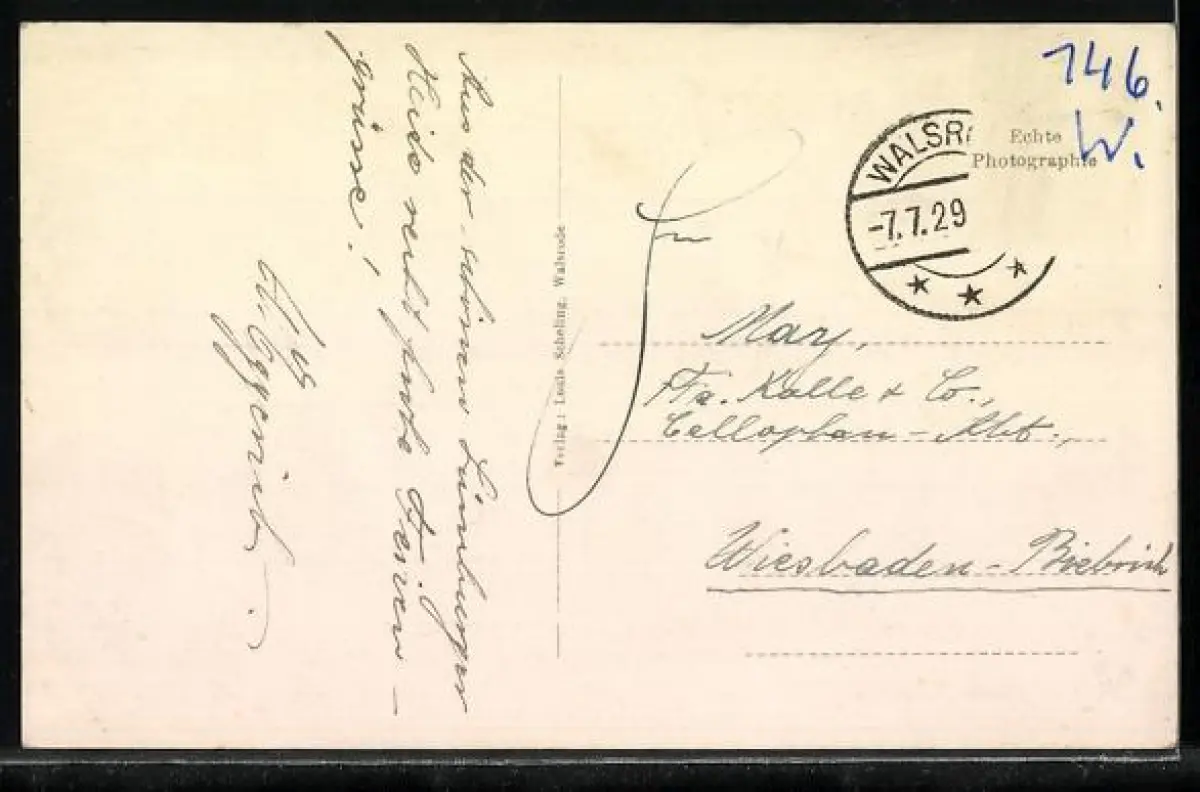 Aus der schönen Lüneburger
Heide recht frohe Ferien-
grüsse!
Verlag: Louis Scheling, Walsrode
146.
W.
Echte
Photographie
WALSR
-7.7.29
May,
Fa. Kalle & Co.,
Cellophan-Abt.,
Wiesbaden-Biebrich